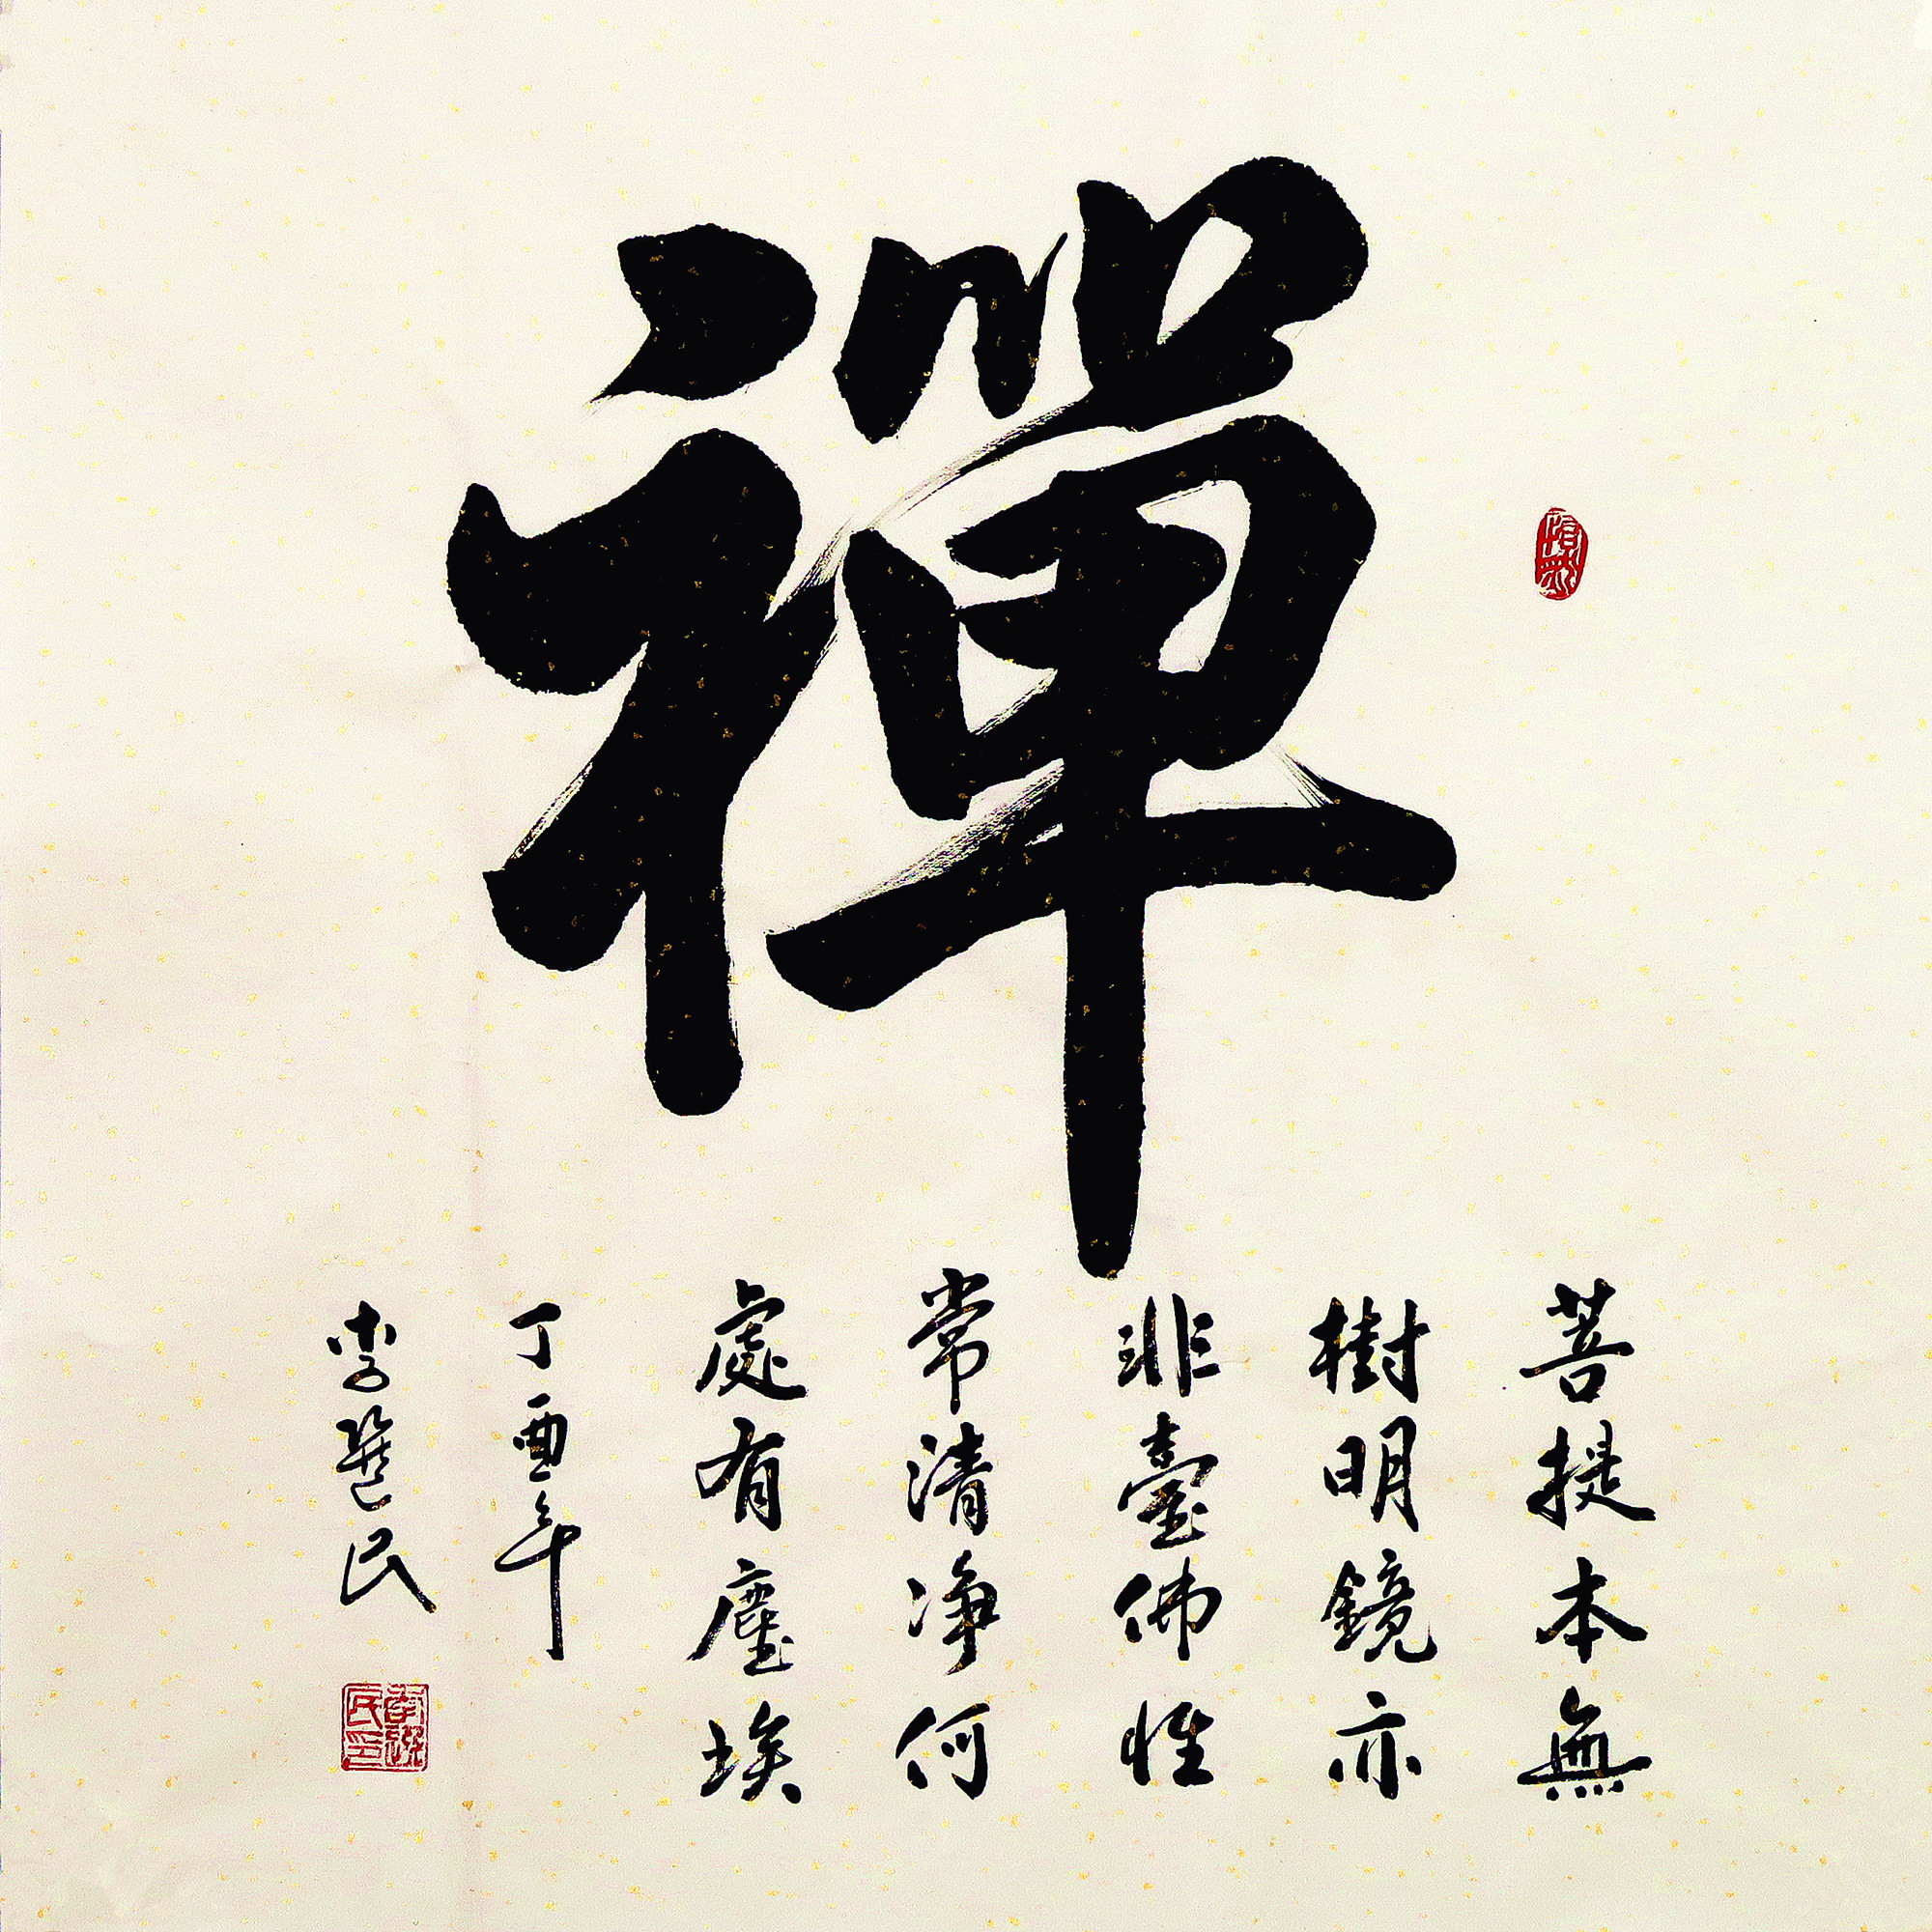 禪
菩提本無
樹明鏡亦
非臺佛性
常清净何
處有塵埃
丁酉年
李選民
李選民印